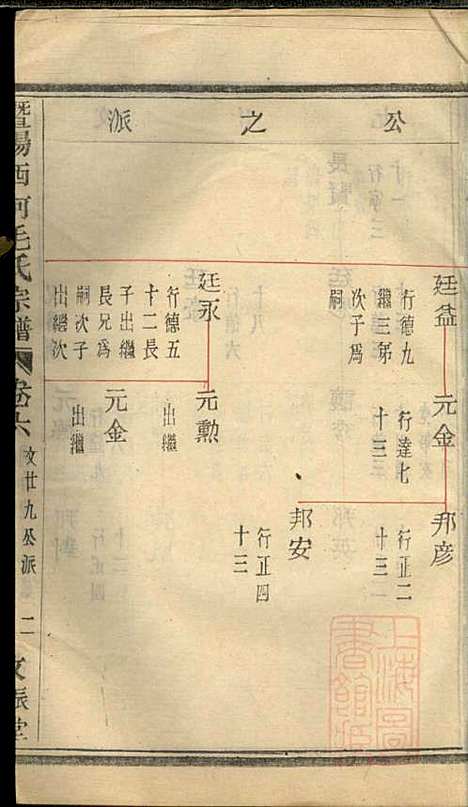 公之派
廷益
行德九
繼三弟
次子爲
嗣
元金
行達七
十三
邦彦
行正二
十三
邦安
行正四
十三
廷永
行德五
十二長
子出繼
長兄爲
嗣次子
出繼次
元勲
出繼
元金
出繼
暨陽西河毛氏宗譜
卷六
文廿九公派
二
文振堂
上海圖書館藏